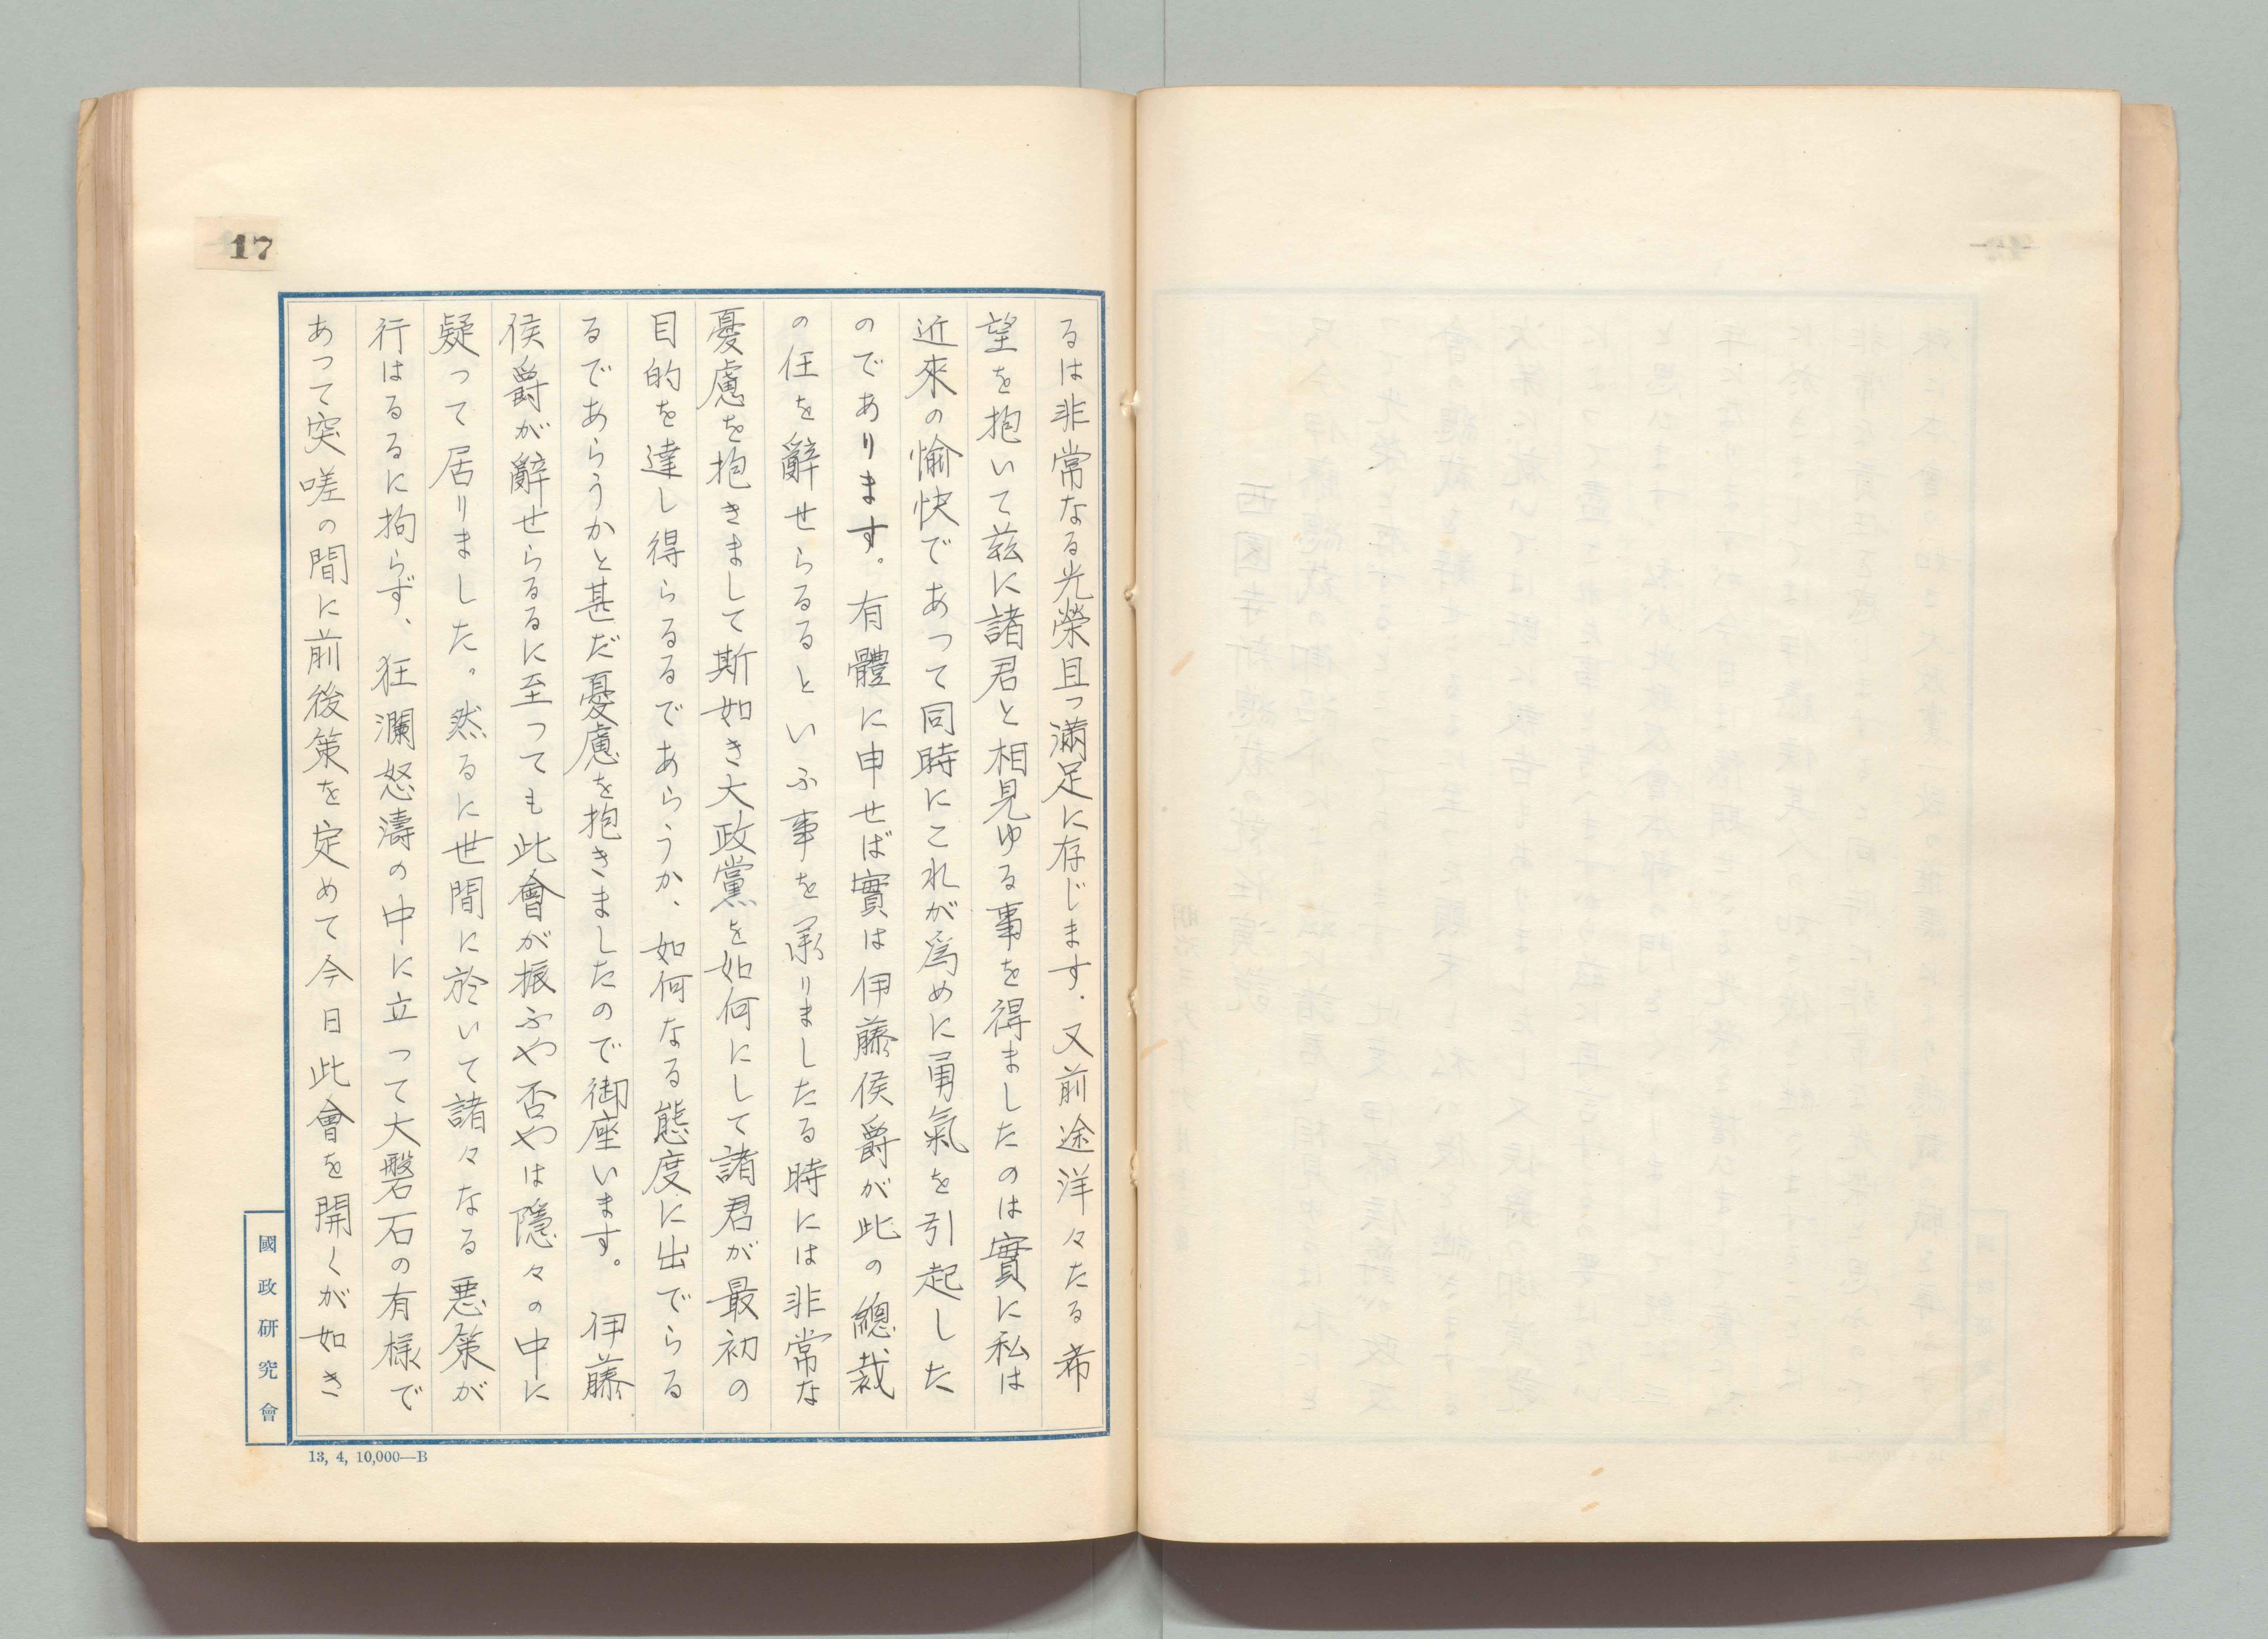 17
るは非常なる光榮且つ満足に存じます．又前途洋々たる希
望を抱いて茲に諸君と相見ゆる事を得ましたのは實に私は
近來の愉快であって同時にこれが爲めに勇氣を引起した
のであります。有體に申せば實は伊藤侯爵が此の總裁
の任を辭せらるるといふ事を承りましたる時には非常な
憂慮を抱きまして斯如き大政黨を如何にして諸君が最初の
目的を達し得らるるであらうか、如何なる態度に出でらる
るであらうかと甚だ憂慮を抱きましたので御座います。伊藤
侯爵が辭せらるるに至つても此會が振ふや否やは隱々の中に
疑って居りました。然るに世間に於いて諸々なる悪策が
行はるるに拘らず、狂瀾怒濤の中に立って大磐石の有様で
あって突嗟の間に前後策を定めて今日此會を開くが如き
國政研究會
13, 4, 10,000—B